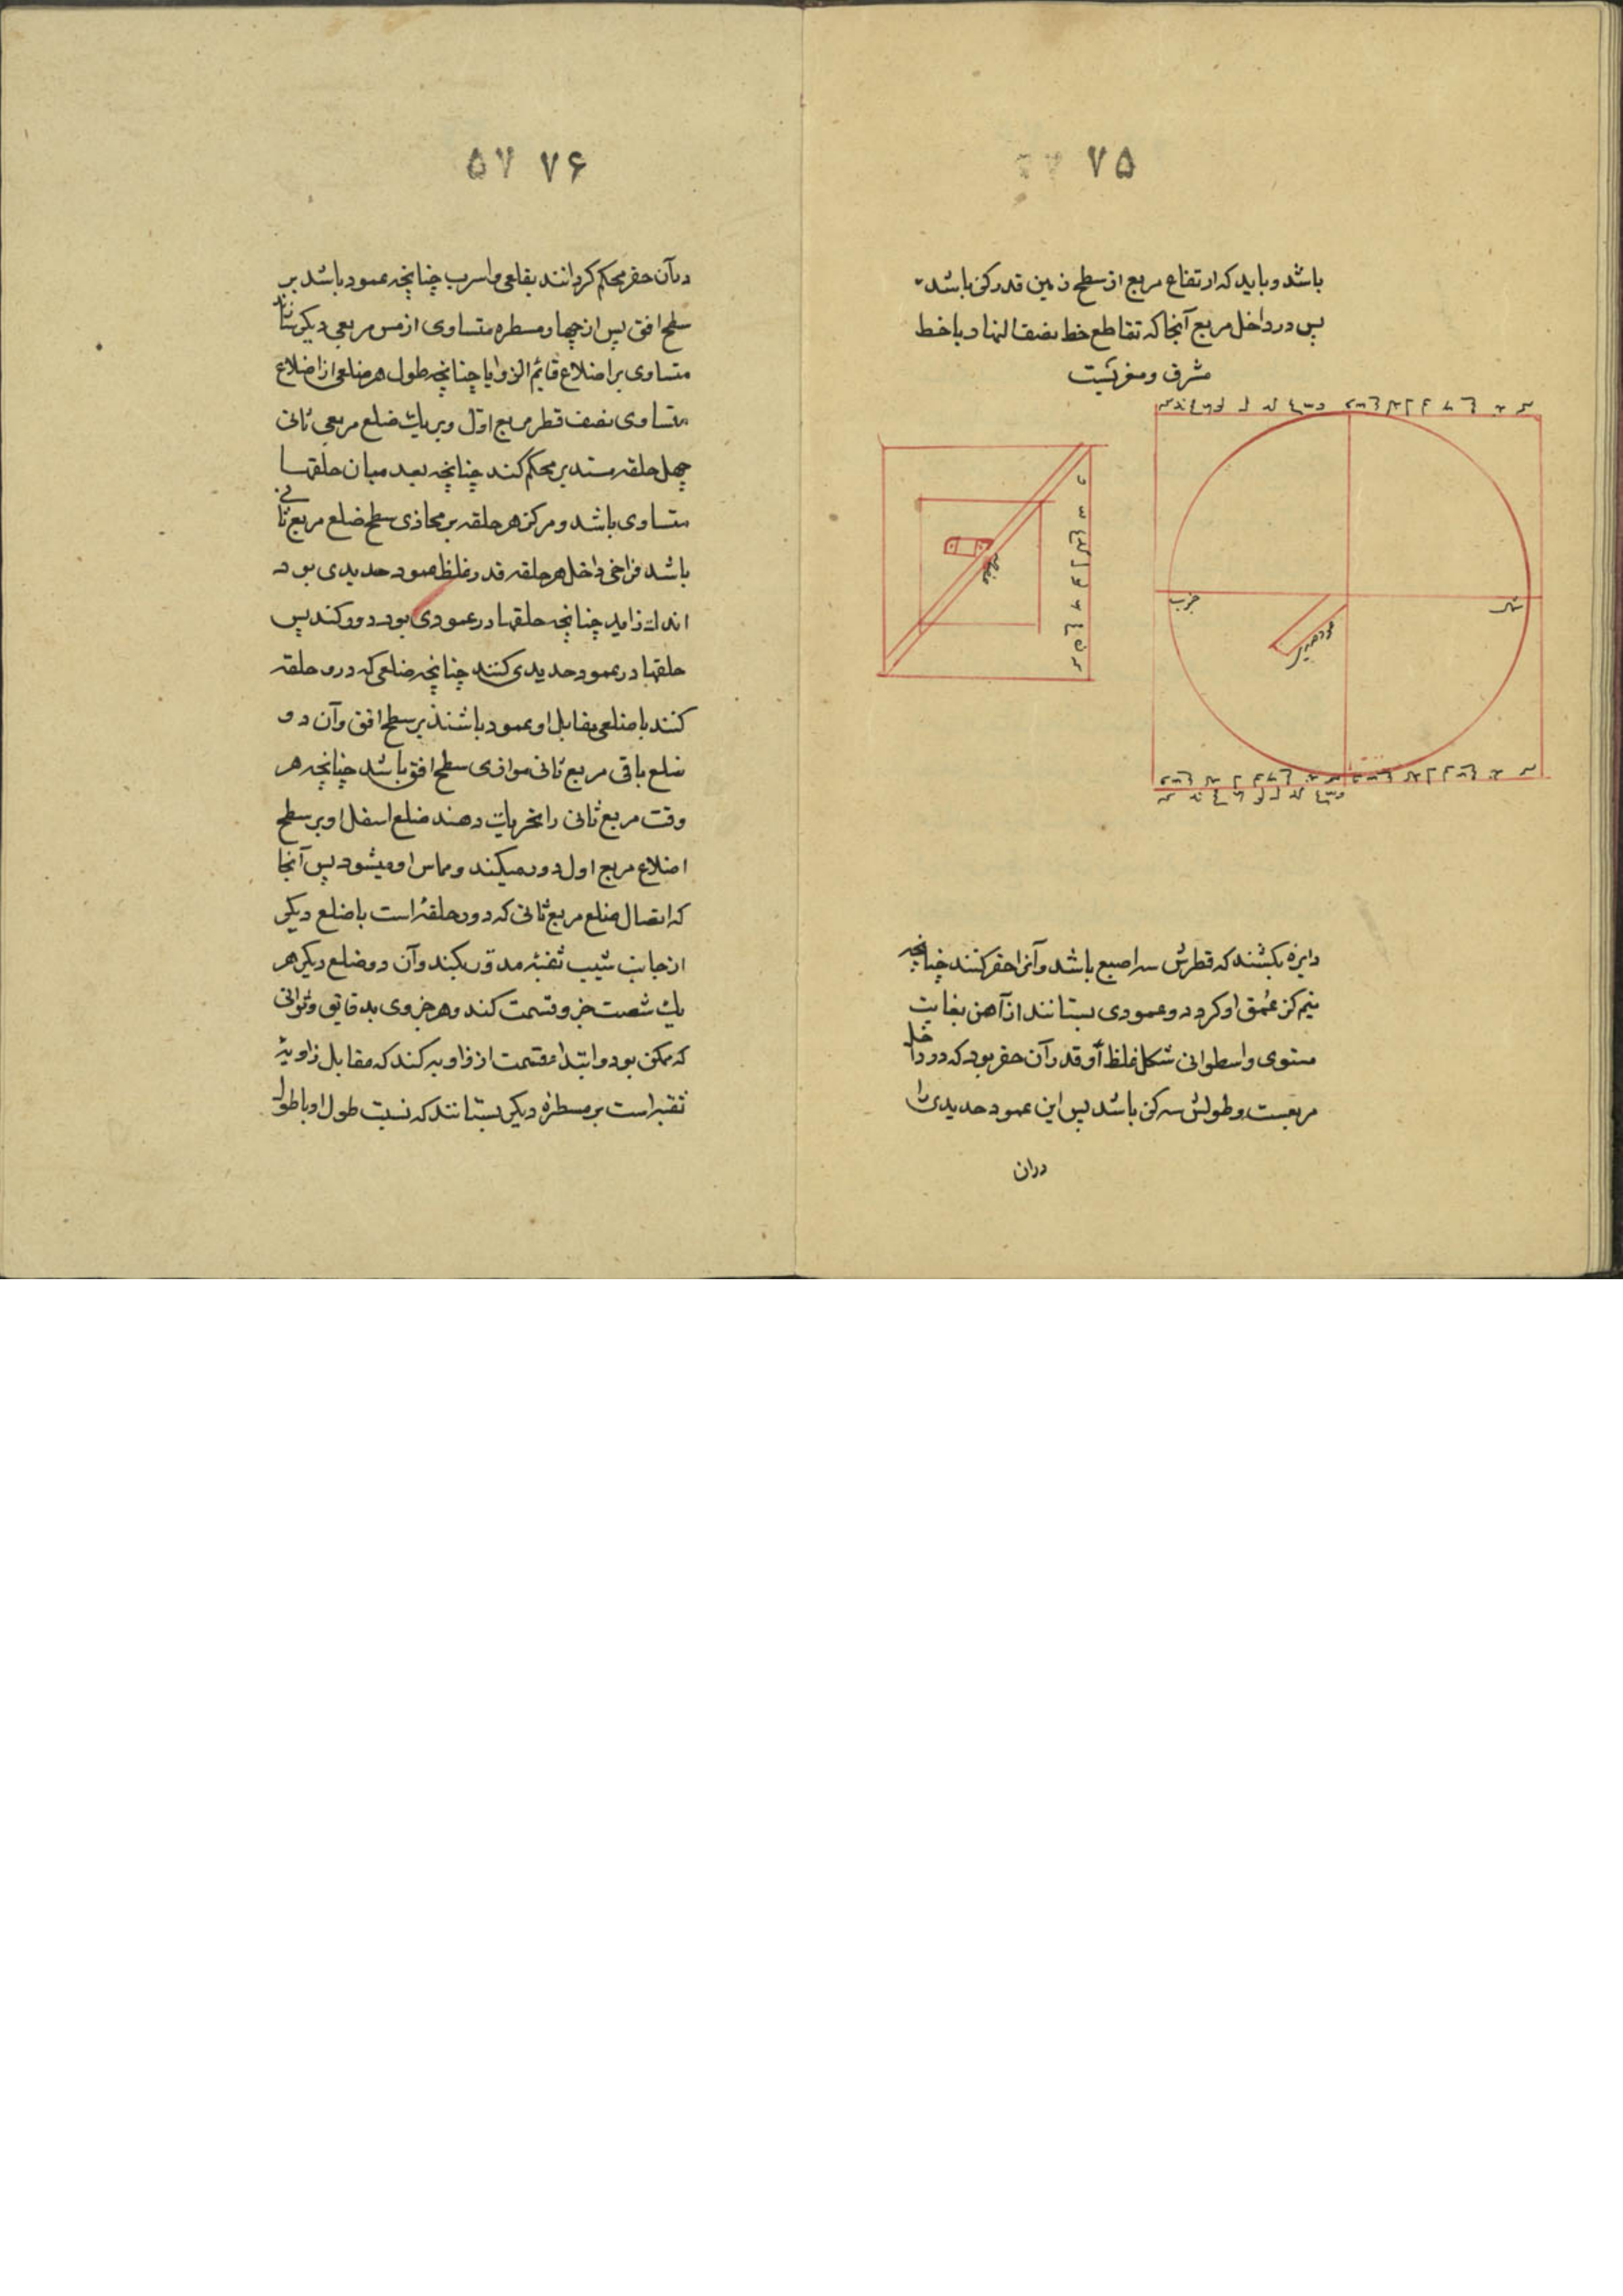 ۷۵
باشد و باید که ارتفاع مربع از سطح زمین قدر کزی باشد
پس در داخل مربع آنجا که تقاطع خط نصف النهار با خط
مشرق و مغربست
شرق
غرب
عمود حدیدی
دایره بکشند که قطرش سه اصبع باشد و آنرا حفر کنند چنانچه
نیم کز عُمق او کردد و عمودی بستانند از آهن بغایت
مستوی و اسطوانی شکل غلظ او قدر آن حفر بود که در داخل
مربعست و طولش سه کز باشد پس این عمود حدیدی را
دران
۷۶ ۵۷
در آن حفر محکم کردانند بقلعی و اسرب چنانچه عمود باشد بر
سطح افق پس از چهار مسطره متساوی از مس مربعی دیکر بسازند
متساوی بر اضلاع قایم الزوایا چنانچه طول هر ضلعی از اضلاع
متساوی نصف قطر مربع اول و بر یك ضلع مربعی ثانی
چهل حلقه مستدیر محکم کند چنانچه بعد میان حلقها
متساوی باشد و مرکز هر حلقه بر محاذی سطح ضلع مربع ثانی
باشد فراخی داخل هر حلقه قدر غلظ عمود حدیدی بود
اندك زاید چنانچه حلقها در عمودی بود دور کند پس
حلقها در عمود حدیدی کنند چنانچه ضلعی که درو حلقه
کنند با ضلعی مقابل او عمود باشند بر سطح افق و آن دو
ضلع باقی مربع ثانی موازی سطح افق باشد چنانچه هر
وقت مربع ثانی را تحریك دهند ضلع اسفل او بر سطح
اضلاع مربع اول دور میکند و مماس او میشود پس آنجا
که اتصال ضلع مربع ثانی که درو حلقه است با ضلع دیکر
از جانب شیب ثقبه مدور بکنند و آن دو ضلع دیکر هر
یك شصت جزو قسمت کند و هر جزوی بدقایق و ثوانی
که ممکن بود و ابتداء قسمت از زاویه کند که مقابل زاویۀ
ثقبه است بر مسطره دیکر بستانند که نسبت طول او با طول